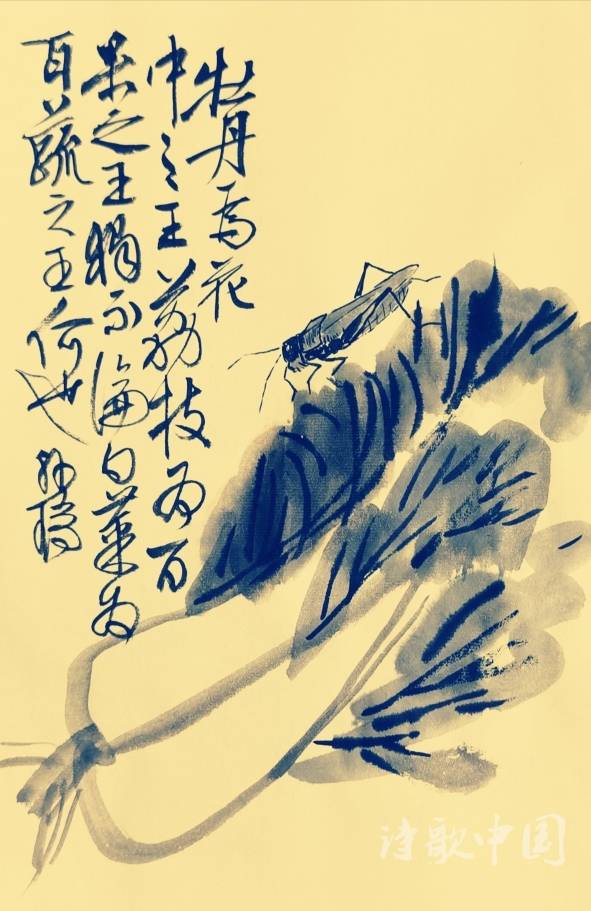 牡丹為花
中之王荔枝为百
果之王獨不論白菜为
百蔬之王何也
诗歌中国